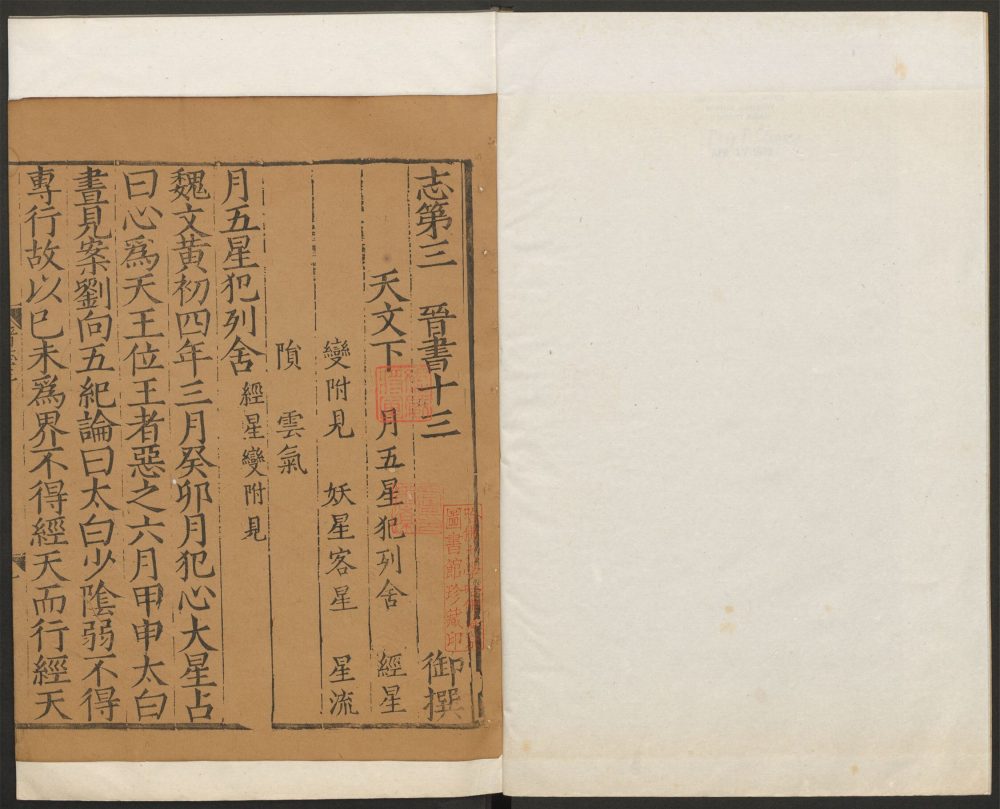 志第三 晉書十三 御撰
天文下 月五星犯列舍 經星
變附見 妖星客星 星流
隕 雲氣
月五星犯列舍 經星變附見
魏文黃初四年三月癸卯月犯心大星占
曰心爲天王位王者惡之六月甲申太白
晝見案劉向五紀論曰太白少陰弱不得
專行故以巳未爲界不得經天而行經天
圖書館珍藏印